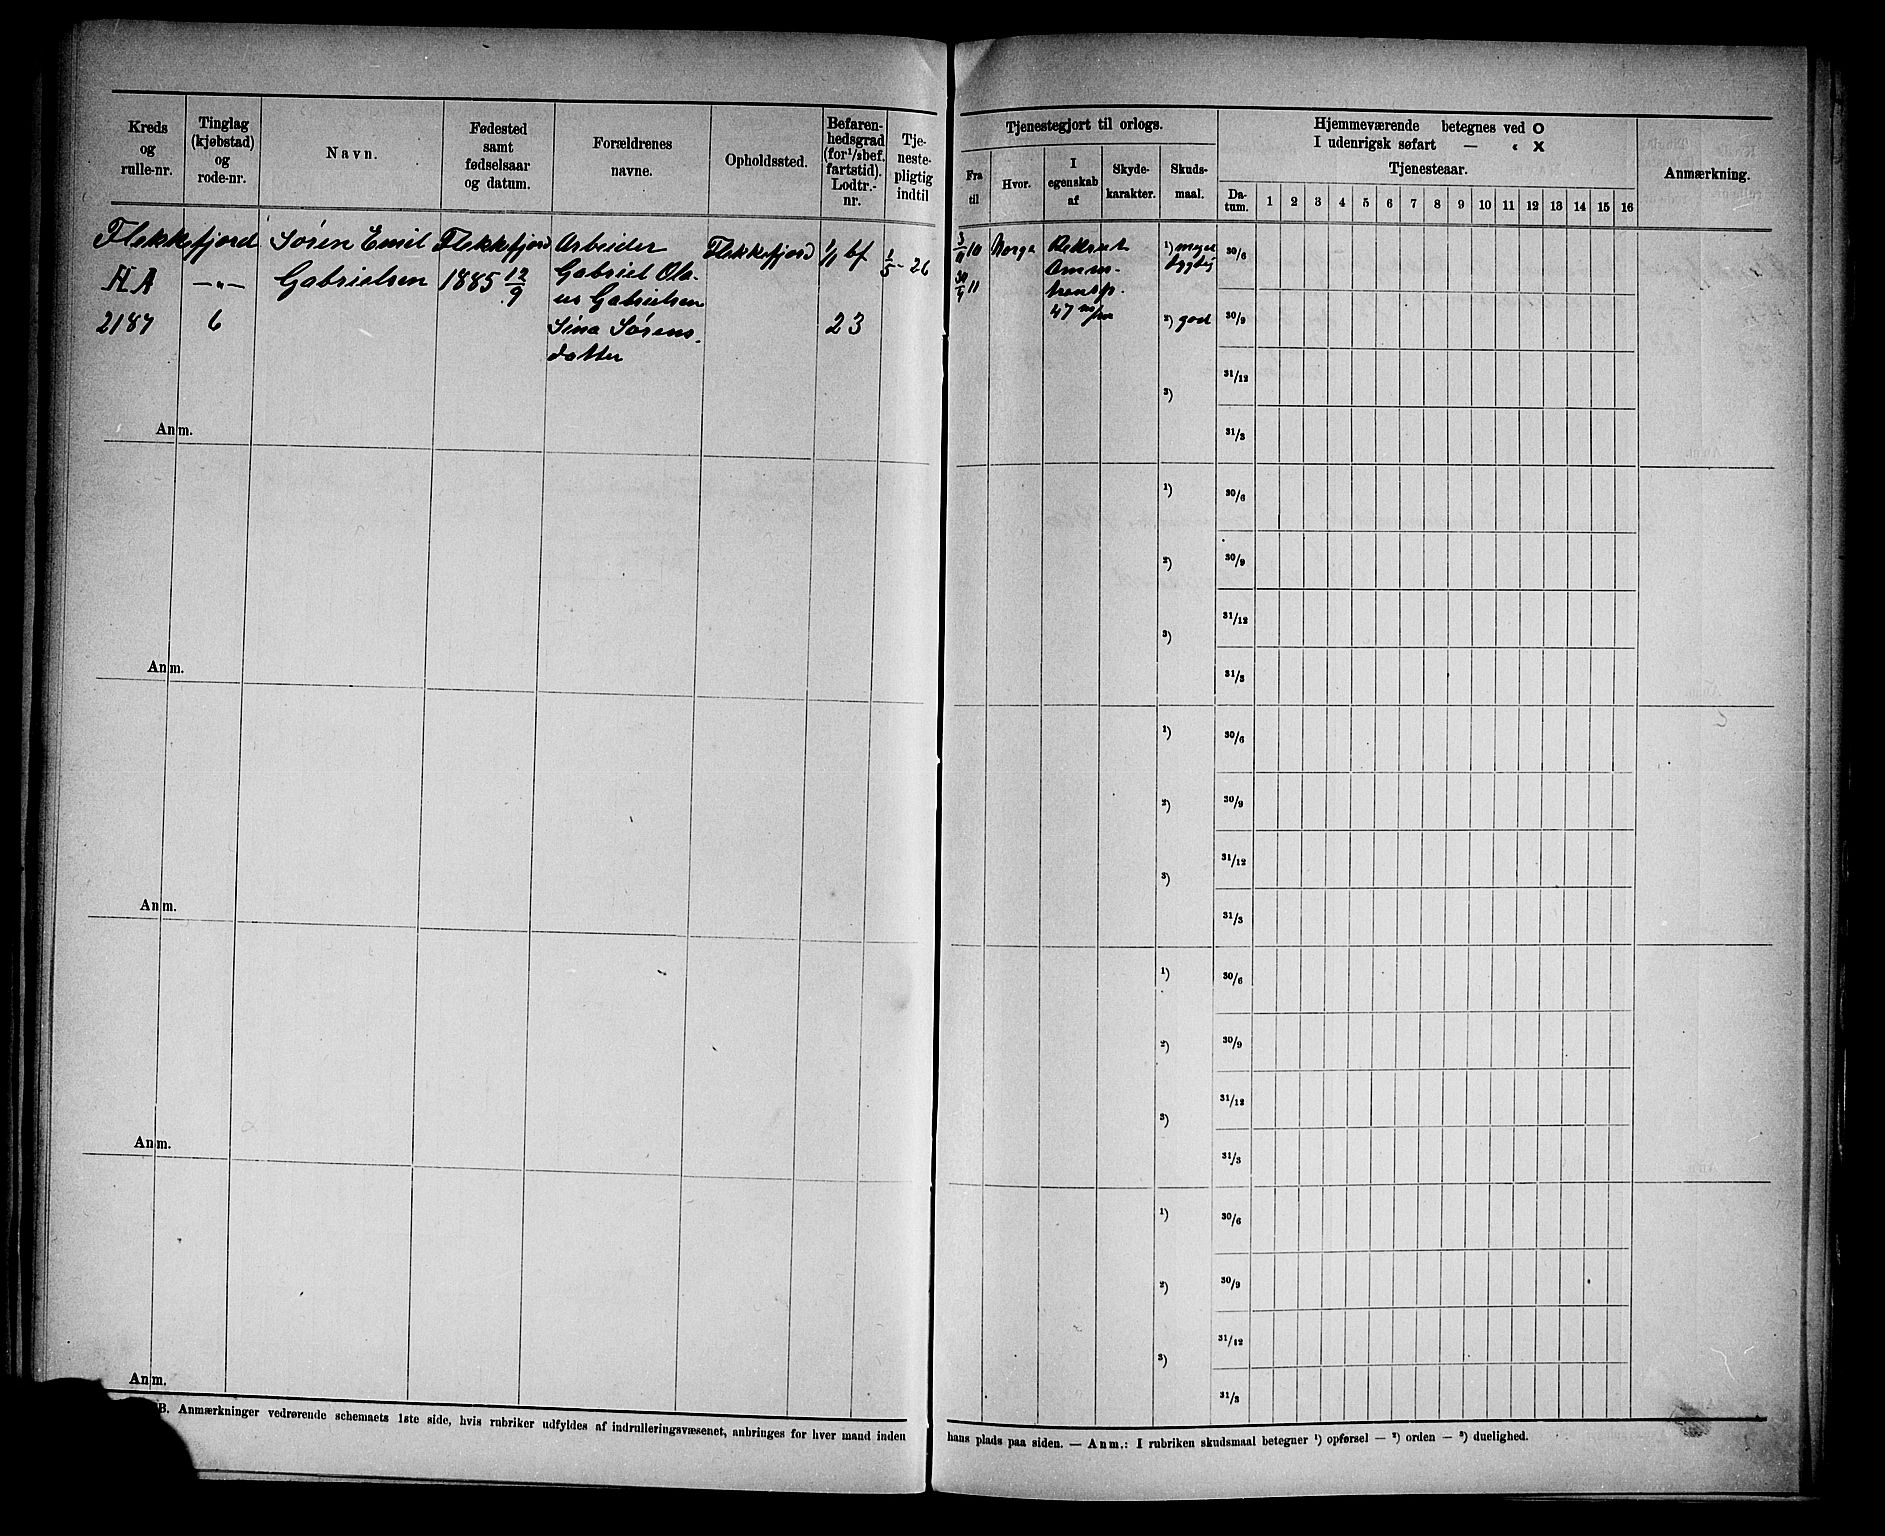 Kreds og rulle-nr.
Tinglag (kjøbstad) og rode-nr.
Navn.
Fødested samt fødselsaar og datum.
Forældrenes navne.
Opholdssted.
Befaren-hedsgrad (for¹/sbef. fartstid). Lodtr.-nr.
Tje-neste-pligtig indtil
Tjenestegjort til orlogs.
Fra til
Hvor.
I egenskab af
Skyde-karakter.
Skuds-maal.
Hjemmeværende betegnes ved O
I udenrigsk søfart — « X
Tjenesteaar.
Da-tum. 1 2 3 4 5 6 7 8 9 10 11 12 13 14 15 16
Anmærkning.
Flekkefjord
AA
2187
—„—
6
Søren Emil
Gabrielsen
Flekkefjord
1885 12/9
Arbeider
Gabriel Ola-
us Gabrielsen
Sina Sørens-
datter
Flekkefjord
1/1 bf
23
1/5 - 26
3/11 10
30/4 11
Norge
Rekrut
Amm.
transp.
47 m/m
¹) meget
dygtig
²) god
³)
30/6
30/9
31/12
31/3
Anm.
¹)
²)
³)
30/6
30/9
31/12
31/3
Anm.
¹)
²)
³)
30/6
30/9
31/12
31/3
Anm.
¹)
²)
³)
30/6
30/9
31/12
31/3
Anm.
¹)
²)
³)
30/6
30/9
31/12
31/3
Anm.
B. Anmærkninger vedrørende schemaets 1ste side, hvis rubriker udfyldes af indrulleringsvæsenet, anbringes for hver mand inden
hans plads paa siden. — Anm.: I rubriken skudsmaal betegner ¹) opførsel — ²) orden — ³) duelighed.